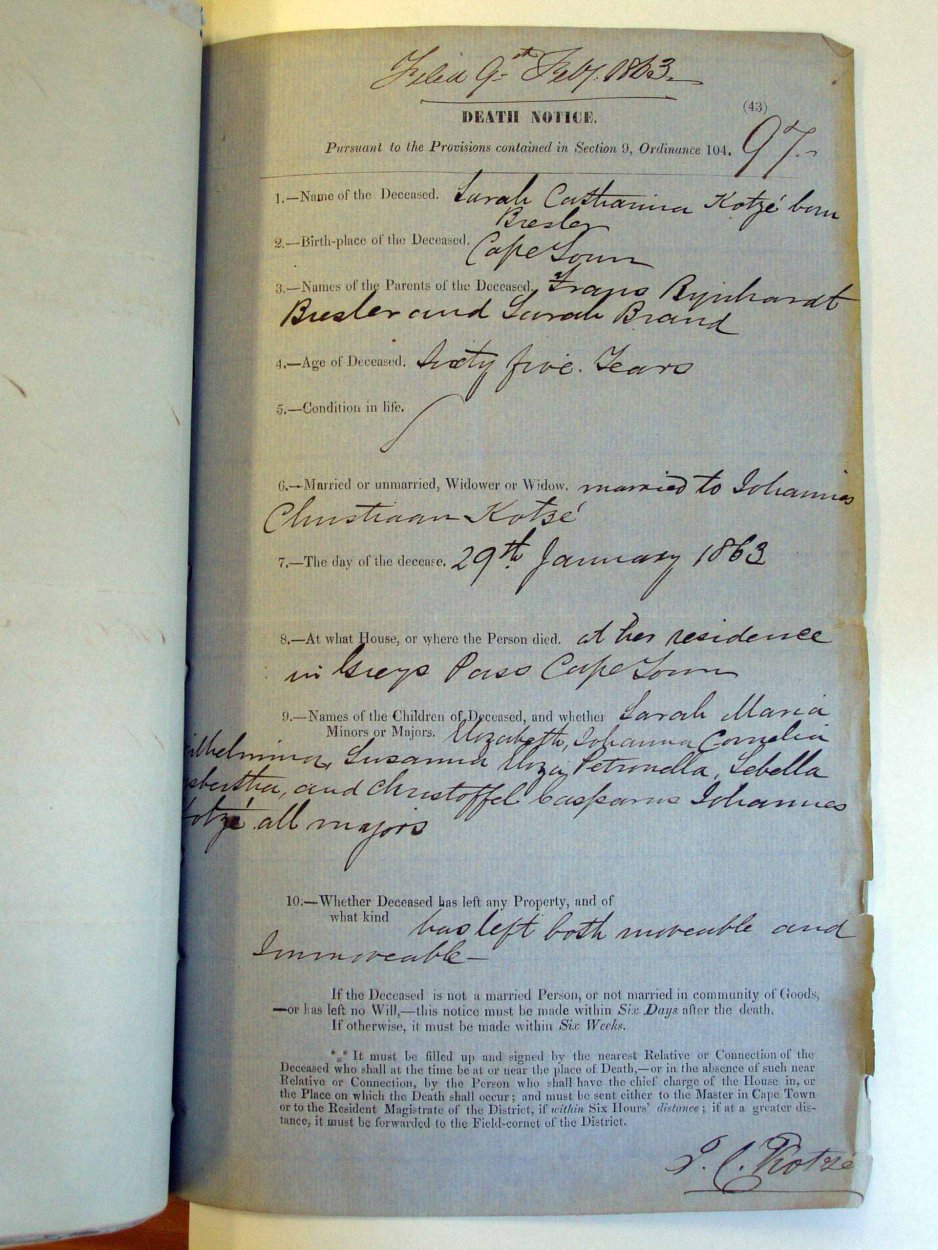 Filed 9th Feby. 1863.
(43)
DEATH NOTICE.
Pursuant to the Provisions contained in Section 9, Ordinance 104.
97
1.—Name of the Deceased. Sarah Catharina Kotzé born
Bresler
2.—Birth-place of the Deceased. Cape Town
3.—Names of the Parents of the Deceased. Frans Rynhardt
Bresler and Sarah Brand
4.—Age of Deceased. Sixty five Years
5.—Condition in life.
6.—Married or unmarried, Widower or Widow. married to Johannes
Christiaan Kotzé
7.—The day of the decease. 29th January 1863
8.—At what House, or where the Person died. at her residence
in Greys Pass Cape Town
9.—Names of the Children of Deceased, and whether Sarah Maria
Minors or Majors. Elizabeth, Johanna Cornelia
ilhelmina, Susanna Eliza Petronella, Sebella
sbertha, and Christoffel Casparus Johannes
Kotzé all majors
10.—Whether Deceased has left any Property, and of
what kind has left both moveable and
Immoveable—
If the Deceased is not a married Person, or not married in community of Goods,
—or has left no Will,—this notice must be made within Six Days after the death.
If otherwise, it must be made within Six Weeks.
*** It must be filled up and signed by the nearest Relative or Connection of the
Deceased who shall at the time be at or near the place of Death,—or in the absence of such near
Relative or Connection, by the Person who shall have the chief charge of the House in, or
the Place on which the Death shall occur; and must be sent either to the Master in Cape Town
or to the Resident Magistrate of the District, if within Six Hours' distance; if at a greater dis-
tance, it must be forwarded to the Field-cornet of the District.
J. C. Kotzé